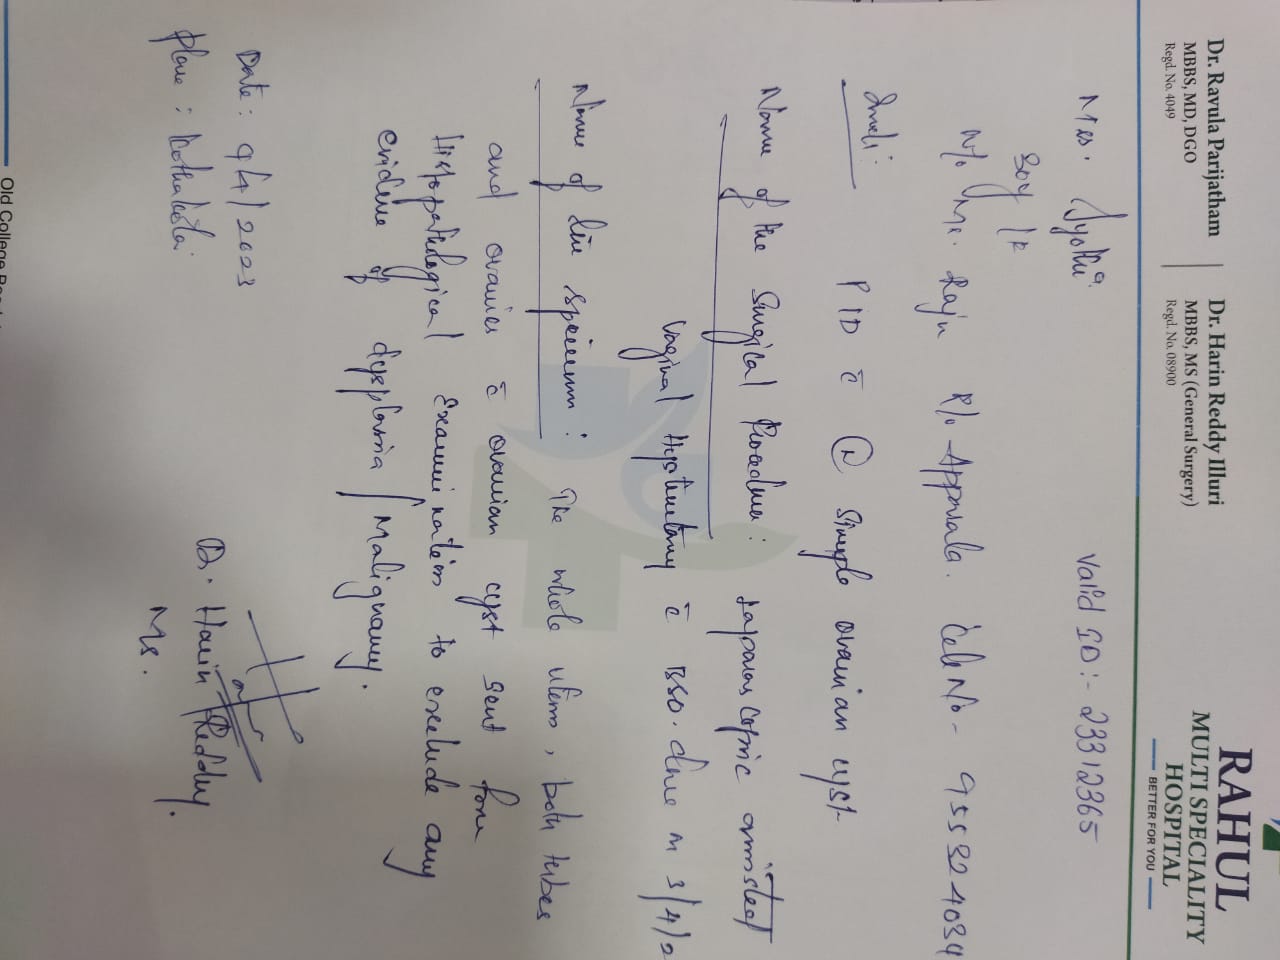 Dr. Ravula Parijatham
MBBS, MD, DGO
Regd. No. 4049
Dr. Harin Reddy Illuri
MBBS, MS (General Surgery)
Regd. No. 08900
RAHUL
MULTI SPECIALITY
HOSPITAL
BETTER FOR YOU
Valid ID:- 23312365
Mrs. Jyothi
W/o Mr. Raju R/o Appasala. Cell No- 955324034
PID c̄ Ⓡ Simple ovarian cyst
Name of the Surgical Procedure: Laparoscopic assisted
Vaginal Hysterectomy c̄ BSO. done on 3/4/2
Name of the specimen: The whole uterus, both tubes
and ovaries c̄ ovarian cyst sent for
Histopathological Examination to exclude any
evidence of dysplasia / Malignancy.
Date: 9/4/2023
Place: Kothakota.
Dr. Harin Reddy.
Ms.
Old College